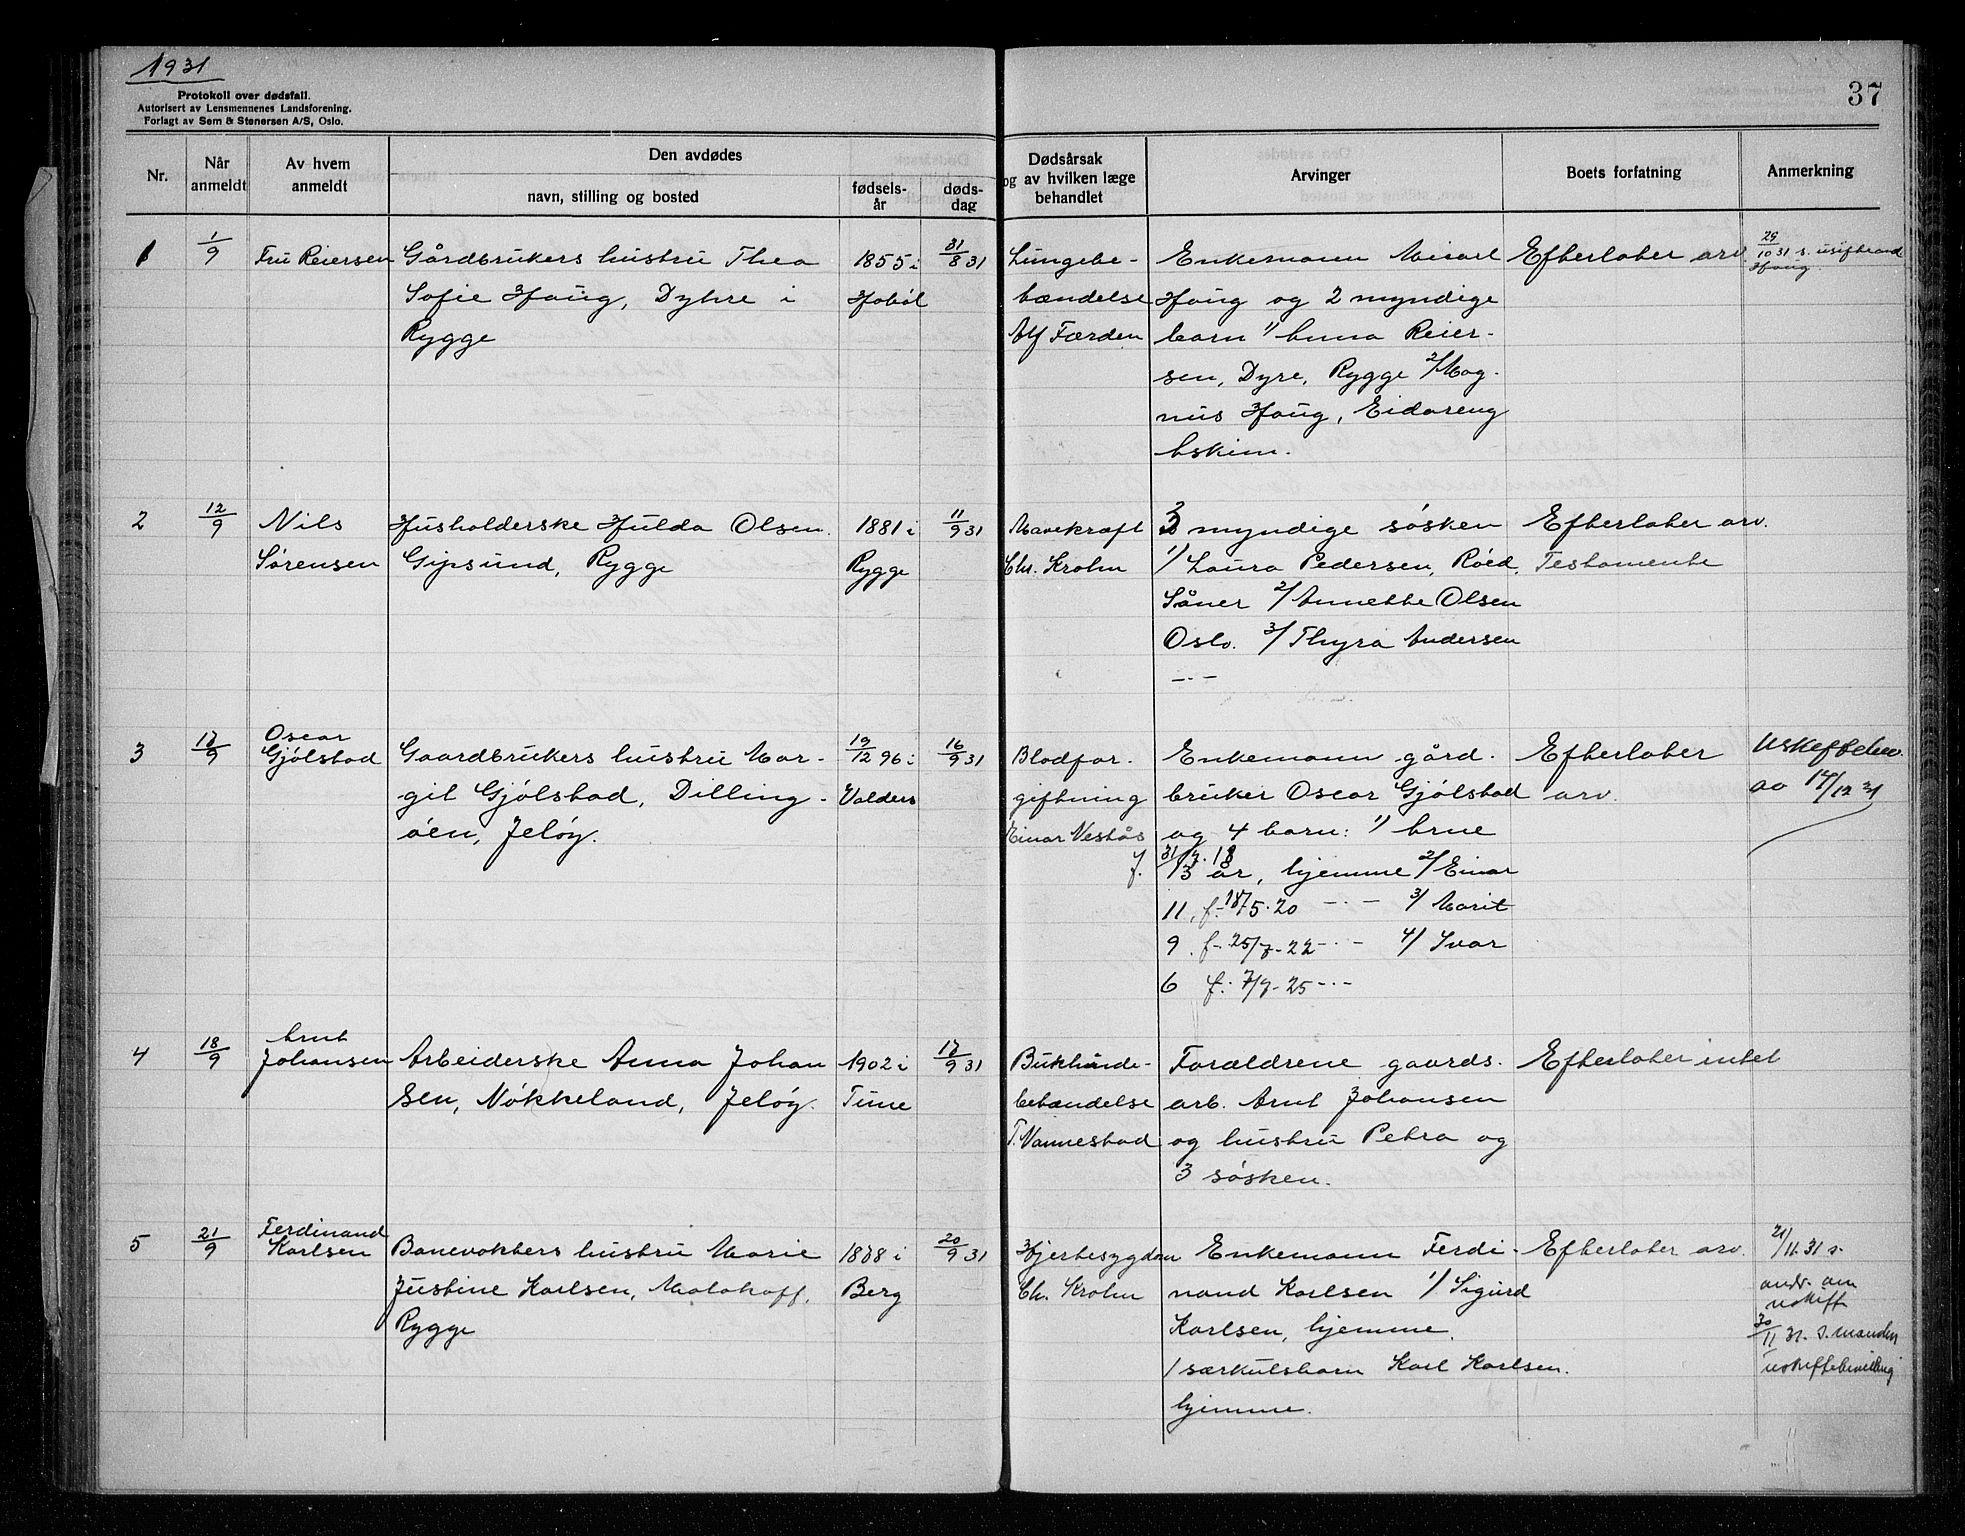 1931
Protokoll over dødsfall.
Autorisert av Lensmennenes Landsforening.
Forlagt av Sem & Stenersen A/S, Oslo.
37
Nr.
Når anmeldt
Av hvem anmeldt
Den avdødes
navn, stilling og bosted
fødsels-år
døds-dag
Dødsårsak
og av hvilken læge
behandlet
Arvinger
Boets forfatning
Anmerkning
1
1/9
Fru Reiersen
Gårdbrukers hustru Thea
Sofie Haug, Dyhre i
Rygge
1855 i
Hobøl
31/8 31
Lungebe-
tændelse
Alf Færden
Enkemann
Haug og 2 myndige
barn 1/ Anna Reier-
sen, Dyre, Rygge 2/ Mag-
nus Haug, Eidareng
Askim.
Efterlater arv
29/10 31 s.
Haug
2
12/9
Nils
Sørensen
Husholderske Hulda Olsen.
Gipsund, Rygge
1881 i
Rygge
11/9 31
Mavekræft
Chr. Krohn
3 myndige søsken
1/ Laura Pedersen, Røed,
Såner 2/ Annette Olsen
Oslo. 3/ Thyra Andersen
-"-
Efterlater arv.
Testamente
3
17/9
Oscar
Gjølstad
Gaardbrukers hustru Mar-
git Gjølstad, Dilling-
øen, Jeløy.
19/12 96 i
Valders
16/9 31
Blodfor-
giftning
Einar Vestås
Enkemann gård-
bruker Oscar Gjølstad
og 4 barn: 1/ Arne
f. 31/7. 18
13 år, hjemme 2/ Einar
11, f. 18/5. 20 -"- 3/ Marit
9. f. 25/7-22 -"- 4/ Ivar
6 f. 7/9-25 -"-
Efterlater
arv.
Uskiftebev.
av 14/12 31
4
18/9
Arnt
Johansen
Arbeiderske Anna Johan
sen, Nøkkeland, Jeløy.
1902 i
Tune
17/9 31
Bukhinde-
betændelse
T. Vannestad
Forældrene gaards-
arb. Arnt Johansen
og hustru Petra og
3 søsken.
Efterlater intet
5
21/9
Ferdinand
Karlsen
Banevokters hustru Marie
Justine Karlsen, Malakoff,
Rygge
1878 i
Berg
20/9 31
Hjertesygdom
Ch. Krohn
Enkemann Ferdi-
nand Karlsen 1/ Sigurd
Karlsen, hjemme.
1 særkulsbarn Karl Karlsen.
hjemme.
Efterlater arv.
21/11 31 s.
andr. om
uskift
30/11 31. s. manden
uskiftebevilling